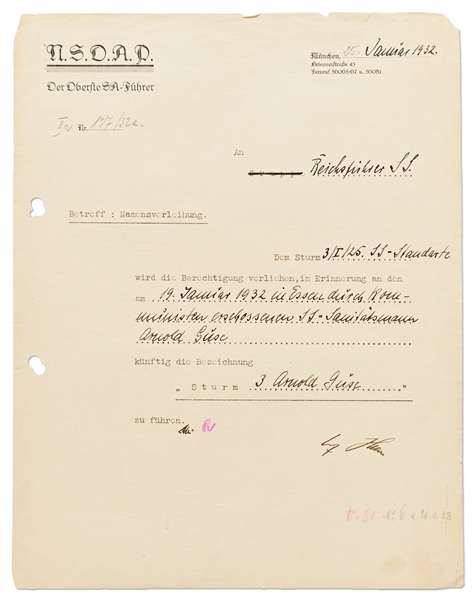 N.S.D.A.P.
Der Oberste SA-Führer
München, 25. Januar 1932.
Briennerstraße 45
Fernruf 56063-67 u. 50081
IIa Nr. 157/32a.
An
Reichsführer SS.
Betreff : Namensverleihung.
Dem Sturm 3/I/25. SS-Standarte
wird die Berechtigung verliehen, in Erinnerung an den
am 19. Januar 1932 in Essen durch Kom-
munisten erschossenen SS-Sanitätsmann
Arnold Guse
künftig die Bezeichnung
„ Sturm 3 Arnold Guse "
zu führen.
R